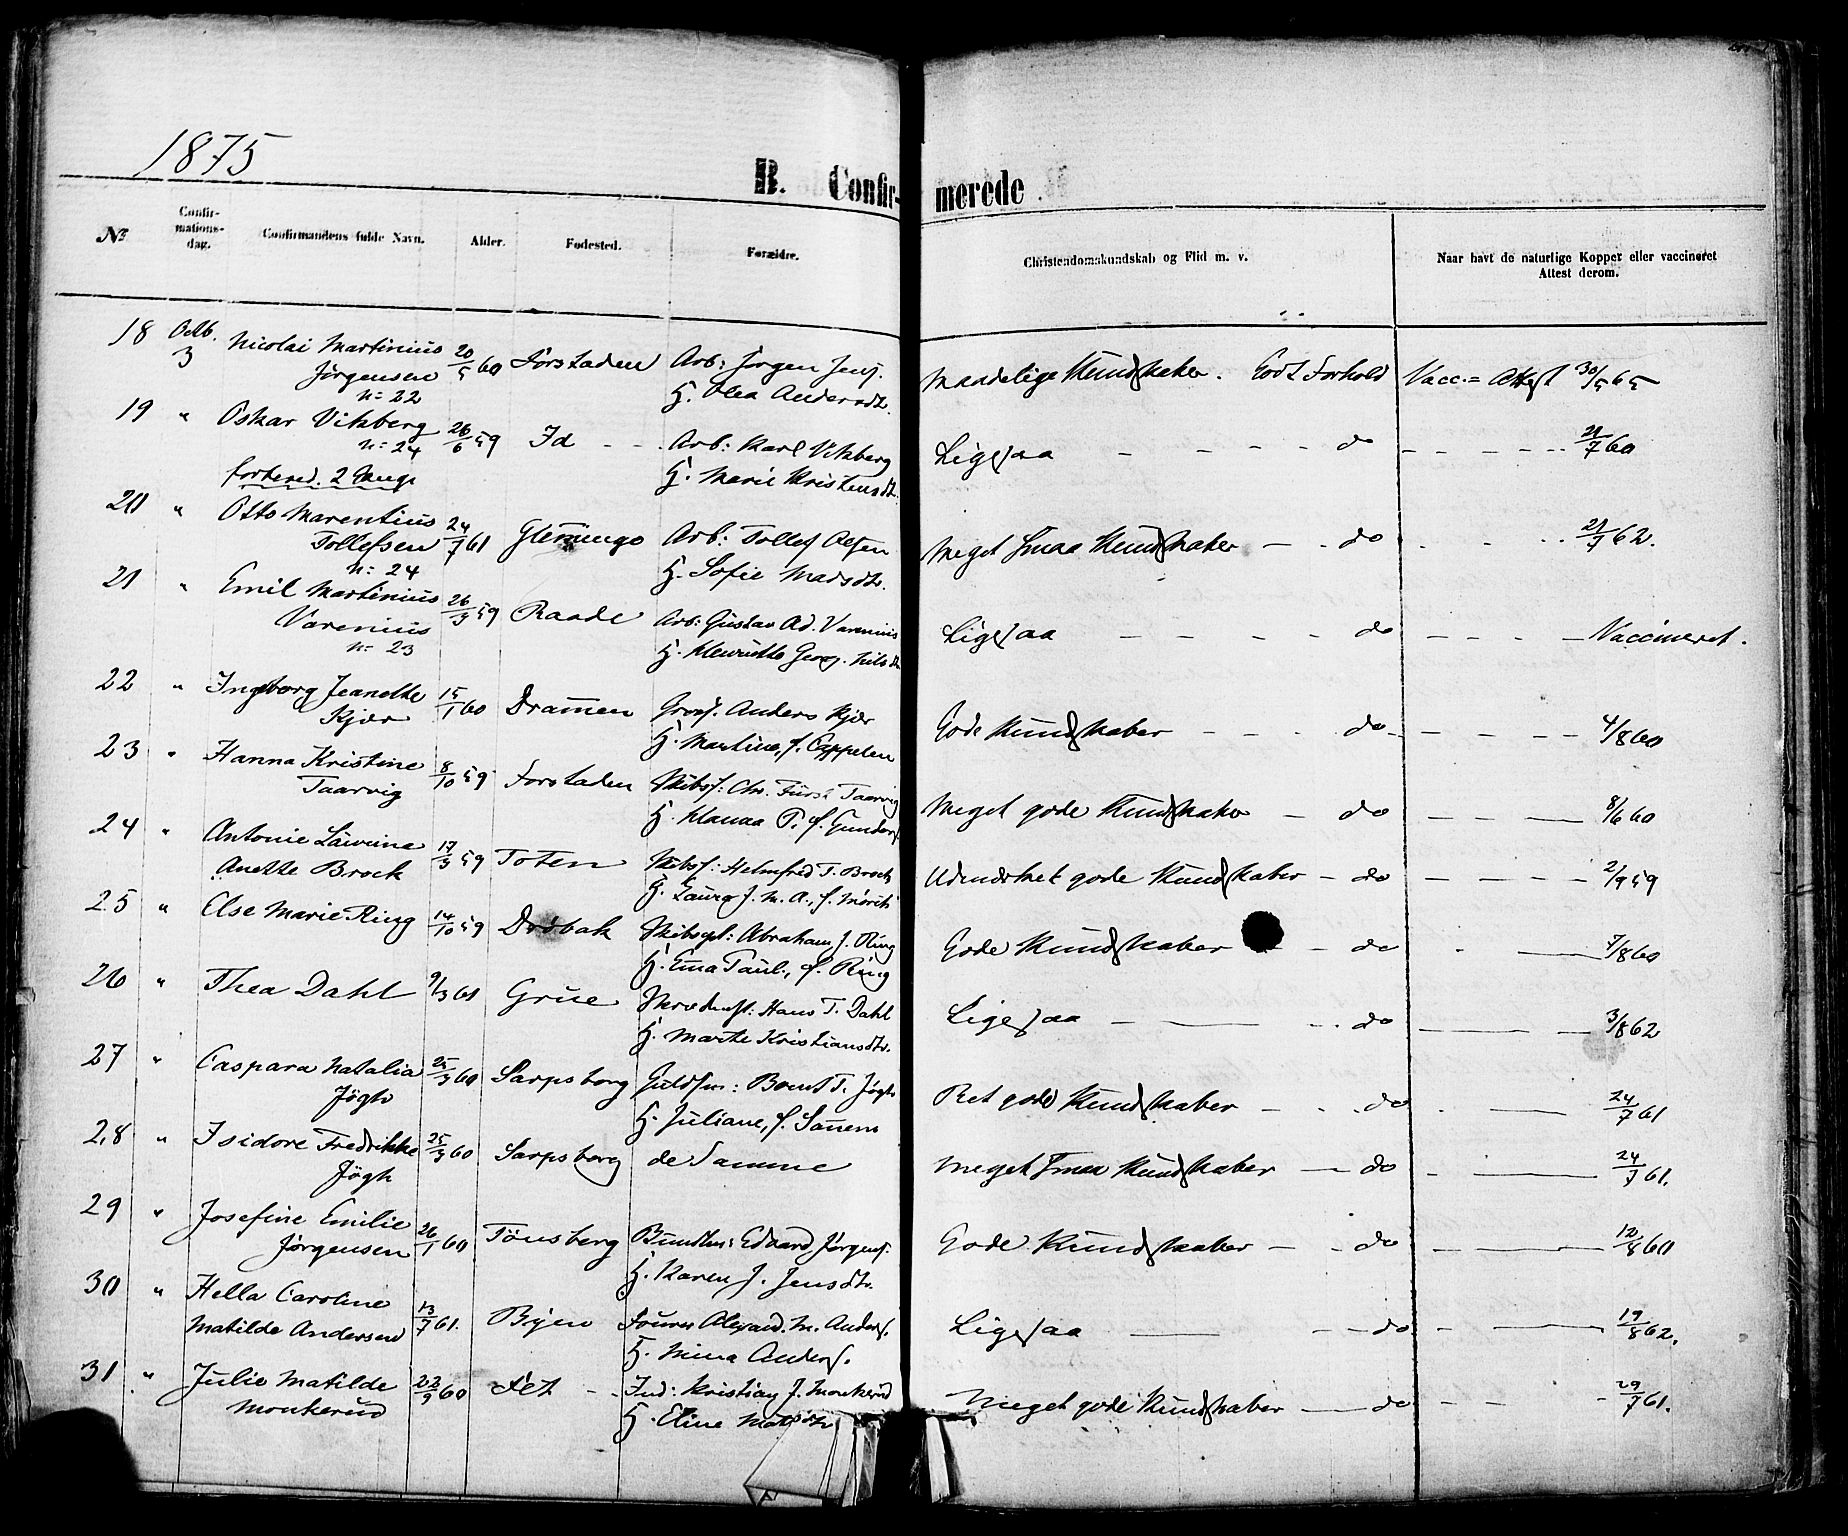 1875
B. Confir- merede
№
Confir-
mations-
dag.
Confirmandens fulde Navn.
Alder.
Fødested.
Forældre.
Christendomskundskab og Flid m. v.
Naar havt de naturlige Kopper eller vaccineret
Attest derom.
18 Octb. Nicolai Martinius 20/5 60 Forstaden Arb: Jørgen Jens. Maadelige Kundskaber. Godt Forhold Vacc. = Attest 30/5 65
3 Jørgensen H. Olea Andersdtr.
n: 22
19 " Oskar Vikberg 26/6 59 Id - - Arb: Karl Vikberg Ligesaa - - - - do - - - - 21/7 60
n: 24 H. Marie Kristensdtr.
20 " Otto Marentius 24/7 61 Glemminge Arb: Tollef Olsen Meget smaa Kundskaber - - do - - - 21/7 62.
Tollefsen H. Sofie Madsdtr.
n: 24
21 " Emil Martinius 26/3 59 Raade Arb: Gustav Ad. Varenius Ligesaa - - - - do - - - - Vaccineret.
Varenius H. Henriette Georg. Nilsdtr
n: 23
22 " Ingeborg Jeanette 15/1 60 Dramen Gross. Anders Kjær Gode Kundskaber - - - do - - - - 4/8 60
Kjær H. Martine, f. Cappelen
23 " Hanna Kristine 8/10 59 Forstaden Skibsf: Chr. Fürst Taarvig Meget gode Kundskaber - do - - - 8/6 60
Taarvig H. Hanna P. f. Gunders.
24 " Antonie 17/3 59 Toten Skibsf: Helmfred T. Brock Udmærket gode Kundskaber - do - - - - 2/9 59
Anette Brock H. Laura J. M. A., f.
25 " Else Marie Ring 14/10 59 Drøbak Abraham J. Ring Gode Kundskaber - - do - - 7/8 60
H. Ema Paul., f. Ring
26 " Thea Dahl 9/3 61 Grue Hans T. Dahl Ligesaa - - - do - - 3/8 62
H. Marte Kristiansdtr.
27 " Caspara Natalia 25/3 60 Sarpsborg Guldsm: Bernt T. Jøgh Ret gode Kundskaber - - do - - 24/7 61
Jøgh H. Juliane, f. Sannem
28 " Isidore Fredrikke 25/3 60 Sarpsborg de Samme Meget smaa Kundskaber - do - - 24/7 61.
Jøgh
29 " Josefine Emilie 26/1 60 Tönsberg Edvard Jørgens. Gode Kundskaber - - do - - - 12/8 60
Jørgensen H. Karen J. Jensdtr.
30 " Hella Caroline 13/7 61. Byen M. Anders. Ligesaa - - - do - - 19/8 62.
Matilde Andersen H. Mina Anders.
31 " Julie Matilde 22/9 60 Fet - - Ind: Kristian J. Monkerud Meget gode Kundskaber - do - - - 29/7 61.
Monkerud H. Eline Matsdtr